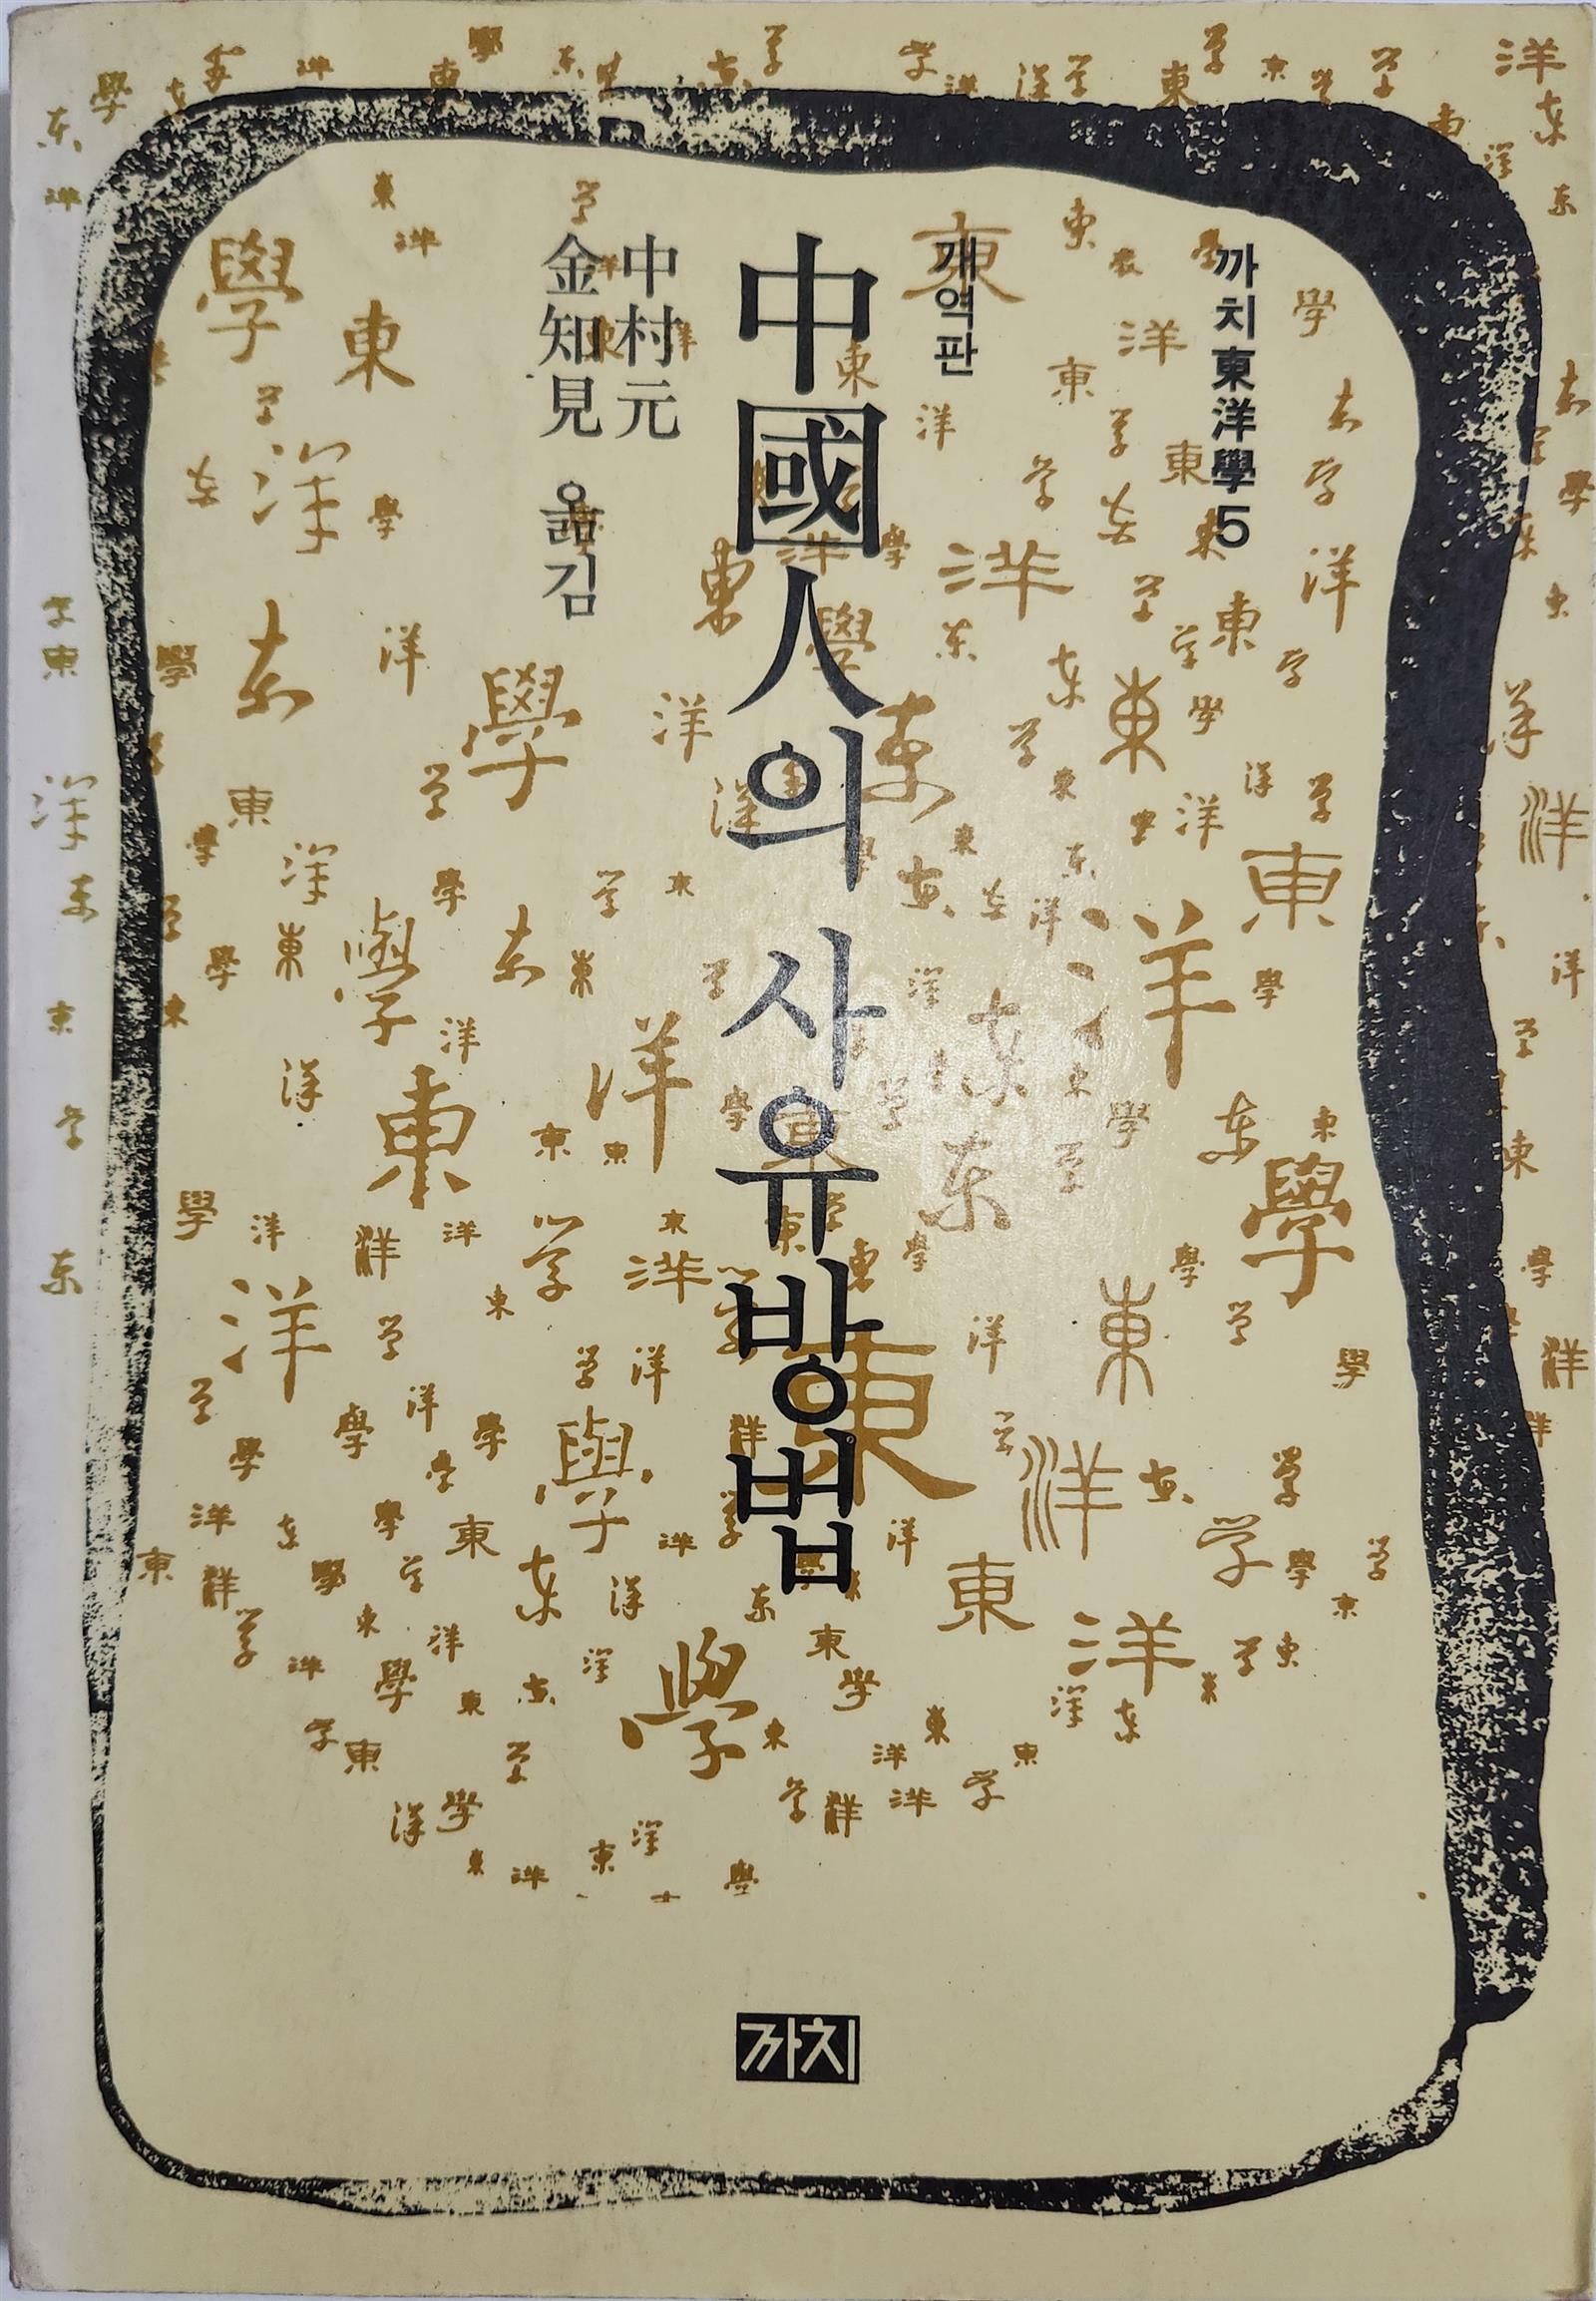 까치東洋學5
개역판
中國人의 사유방법
中村元
金知見 옮김
까치